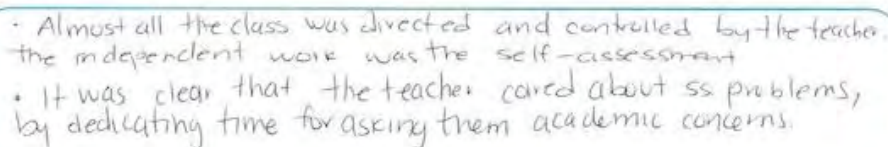 · Almost all the class was directed and controlled by the teacher.
the independent work was the self-assessment
· It was clear that the teacher cared about ss problems,
by dedicating time for asking them academic concerns.